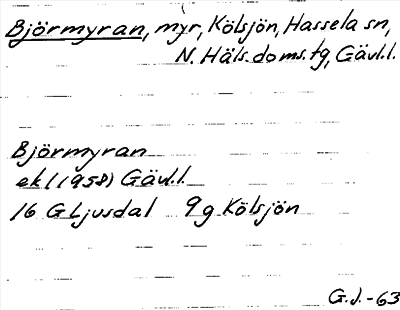 Björmyran, myr, Kölsjön, Hassela sn,
N. Häls. doms. tg, Gävl.l.
Björmyran
ek/(1958) Gävl.l.
16 G Ljusdal 9g Kölsjön
G.J.-63